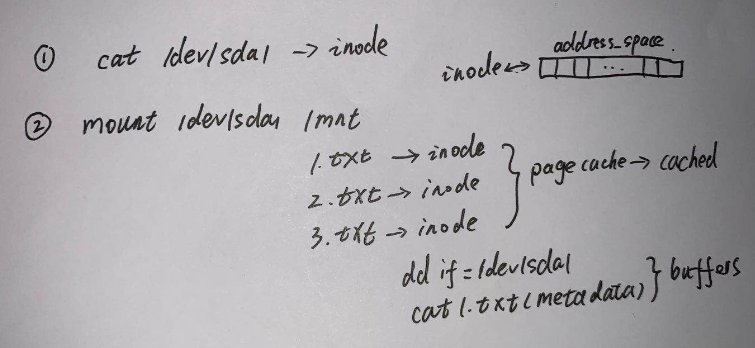 ① cat /dev/sda1 → inode
inode ↔ address_space
...
② mount /dev/sda1 /mnt
1.txt → inode
2.txt → inode
3.txt → inode
page cache → cached
dd if=/dev/sda1
cat 1.txt (metadata)
buffers